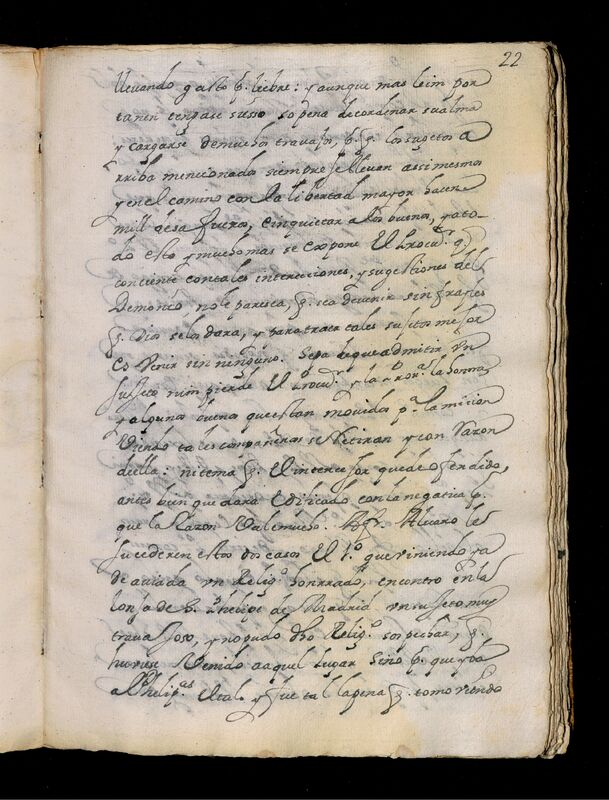 22
lleuando gato p.r liebre: y aunque mas le im por
tunen tengase susso so pena de cordenar su alma
y cargarse de muchos trauajos, p.q. los sugetos a
rriba mencionados siempre se lleuan assi mesmos
y en el camino con la libertad mayor hacen
mill desafueros, e inquietar a los buenos, y a to-
do esto y mucho mas se expone El Procu.r q.
conciente con tales interecciones, y sugestiones del
Demonio, no le paresca, q. sea de venir sin frayles
q. Dios se los dara, y para traer tales sujetos mejor
es Venir sin ninguno. Sepa le que admitir Vn
sujeto ruin pierde El Procu.r y la la honrra
y alguna buena que estan mouidos p.a la micion
Viendo tales compañeros se Retiran y con Razon
della: ni tema q. El intercesor quede ofendido,
antes bien quedara Edificado con la negatiua p.
que la Razon Vale mucho. Alvaro le
sucedieron estos dos casos El 1.o que viniendo ya
de auiada vn Relig.o honrrado, encontro En la
lonja de S. Phelipe de Madrid vn sujeto muy
trauajoso, y no pudo dho Relig.o sospechar, q.
huuiese Venido a aquel lugar sino p. que yba
a Philip.as El tal y fue tal la pena q. tomo viendo